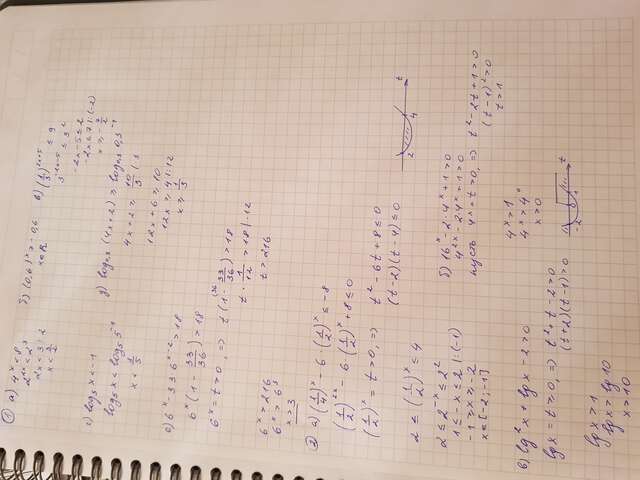 1 а) 4^x < 8
2^2x < 2^3
2x < 3 : 2
x < 3/2
б) (0,6)^x > -0,6
x∈R
в) (1/3)^2x+5 ≤ 9
3^-2x-5 ≤ 3^2
-2x-5 ≤ 2
-2x ≤ 7 | :(-2)
x ≥ -7/2
г) log5 x < -1
log5 x < log5 5^-1
x < 1/5
д) log0,3 (4x+2) ≥ log0,3 0,3^-1
4x+2 ≥ 10/3 | ·3
12x+6 ≥ 10
12x ≥ 4 | :12
x ≥ 1/3
е) 6^x - 33·6^x-2 > 18
6^x (1 - 33/36) > 18
6^x = t > 0, => t (1 - 33/36) > 18
t · 1/12 > 18 | ·12
t > 216
6^x > 216
6^x > 6^3
x > 3
2 а) (1/4)^x - 6·(1/2)^x ≤ -8
(1/2)^2x - 6·(1/2)^x + 8 ≤ 0
(1/2)^x = t > 0, => t^2 - 6t + 8 ≤ 0
(t-2)(t-4) ≤ 0
2 4 t
2 ≤ (1/2)^x ≤ 4
2 ≤ 2^-x ≤ 2^2
1 ≤ -x ≤ 2 | :(-1)
-1 ≥ x ≥ -2
x∈[-2;-1]
б) 16^x - 2·4^x + 1 > 0
4^2x - 2·4^x + 1 > 0
пусть 4^x = t > 0, => t^2 - 2t + 1 > 0
(t-1)^2 > 0
t > 1
4^x > 1
4^x > 4^0
x > 0
в) lg^2 x + lg x - 2 > 0
lg x = t ≥ 0, => t^2 + t - 2 > 0
(t+2)(t-1) > 0
-2 0 1 t
lg x > 1
lg x > lg 10
x > 10